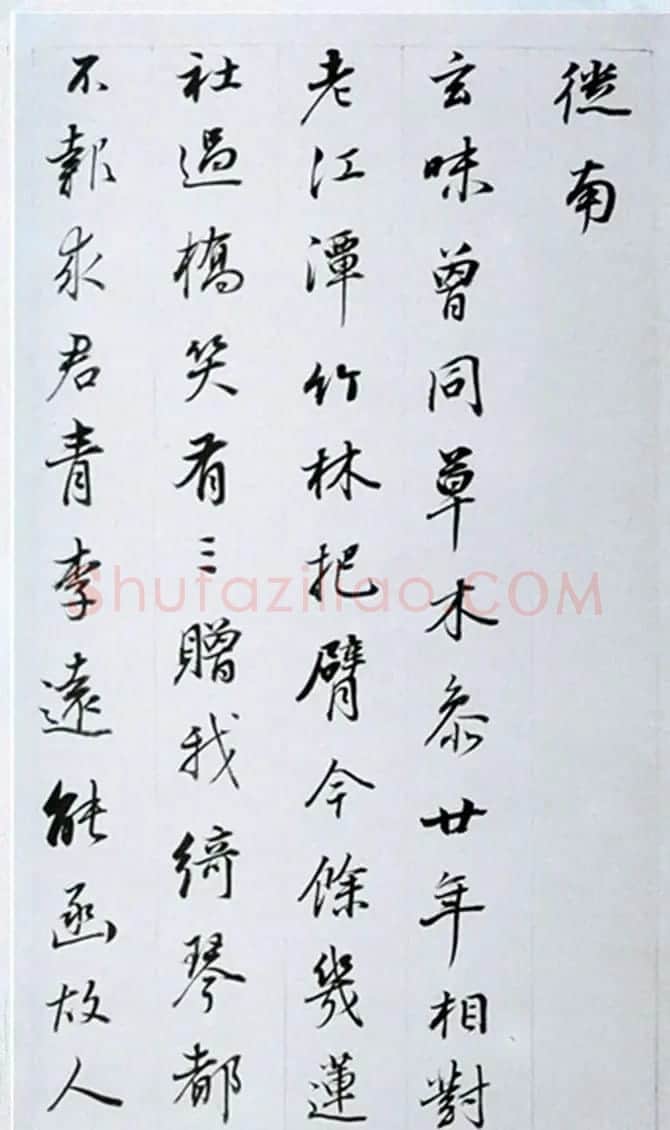 徙南
玄味曾同草木參廿年相對
老江潭竹林把臂今餘幾蓮
社過橋笑有三贈我綺琴都
不報求君青李遠能函故人
shufaziliao.COM